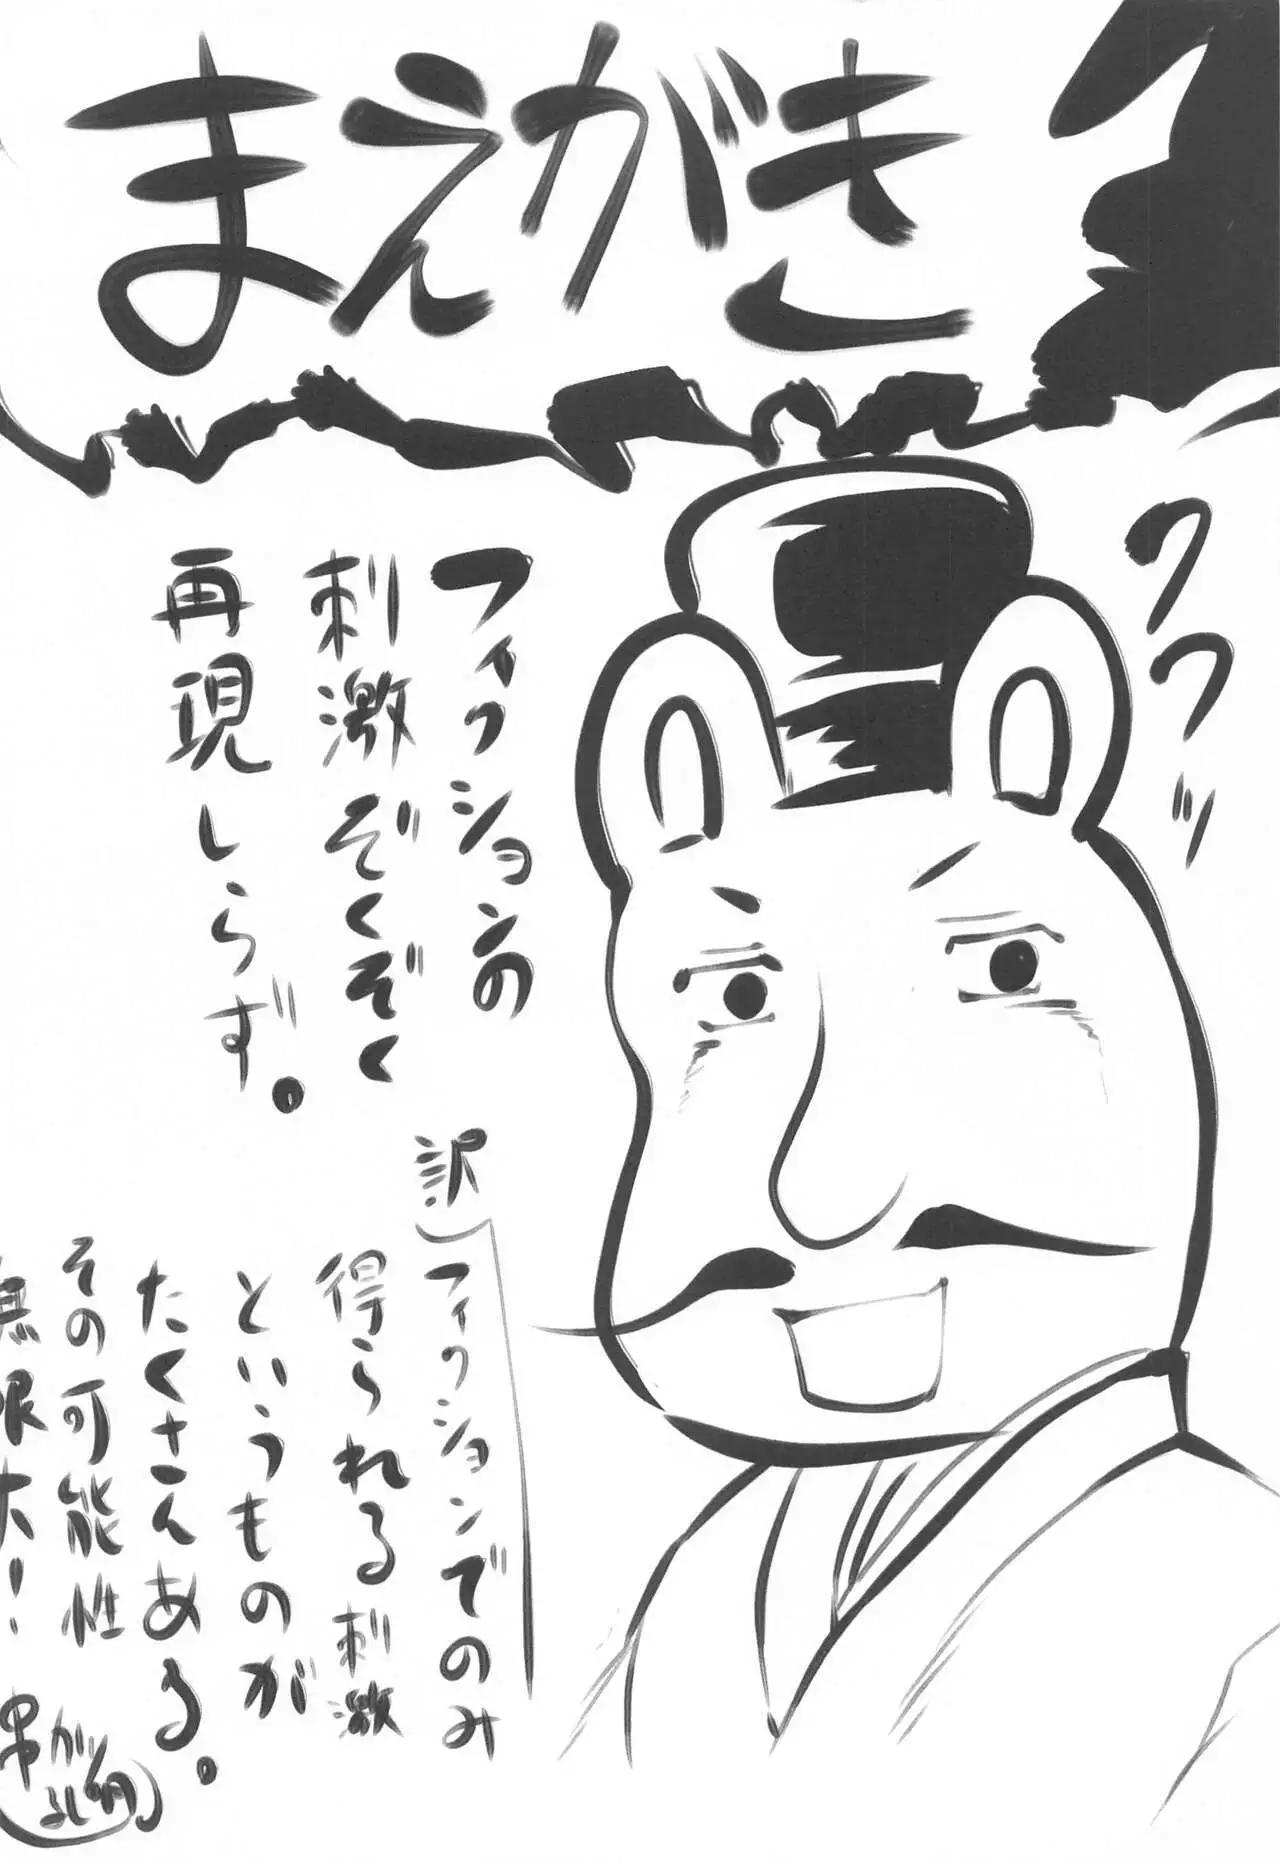 まえがき
クフッ
フィクションの
刺激ぞくぞく
再現しらず。
訳)
フィクションでのみ
得られる刺激
というものが
たくさんある。
その可能性
無限大!